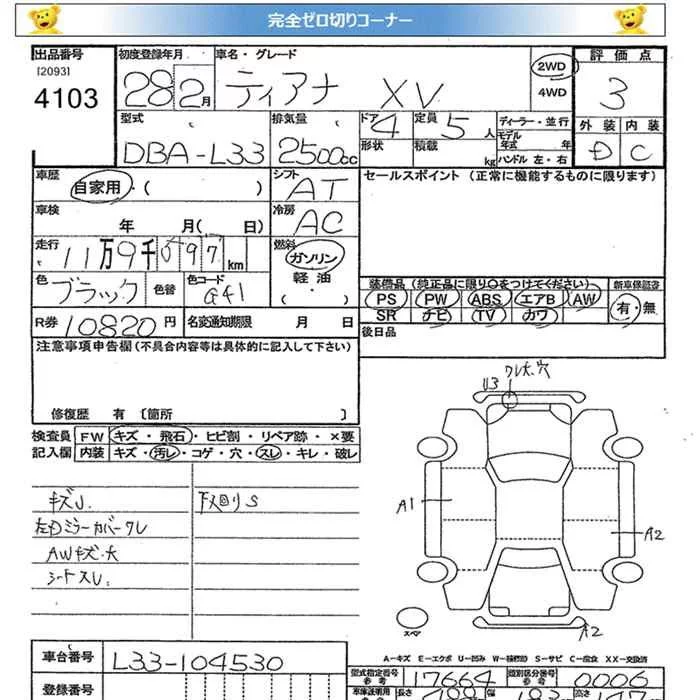 完全ゼロ切りコーナー
出品番号 初度登録年月 車名・グレード 評価点
[2093] 4103 28 2月 ティアナ XV 2WD 4WD 3
外装 内装
D C
型式 排気量 ドア 定員 ディーラー・並行
DBA-L33 2500cc 4 5人 モデル年式 年
形状 積載 kg ハンドル 左・右
車歴 シフト セールスポイント (正常に機能するものに限ります)
自家用・( ) AT
車検 冷房
年 月( 日) AC
走行 燃料
11万9千097km ガソリン
軽油
( ・ )
色 色替 色コード
ブラック G41
装備品 (純正品に限り○をつけてください) 新車保証書
PS PW ABS エアB AW 有・無
SR ナビ TV カワ
R券 10820円 名変通知期限 月 日
後日品
注意事項申告欄(不具合内容等は具体的に記入して下さい)
修復歴 有 [箇所 ]
検査員 FW キズ・飛石・ヒビ割・リペア跡・×要
記入欄 内装 キズ・汚レ・コゲ・穴・スレ・キレ・破レ
キズU. 下回りS
左Dミラーカバーワレ
AWキズ大
シートスレ.
U3 ワレ大.穴
A1
A2
A2
スペア
A-キズ E-エクボ U-凹み W-補修跡 S-サビ C-腐食 XX-交換済
車台番号 L33-104530
登録番号
型式指定番号 17664 類別区分番号 0006
参考 参考
車庫証明用 長さ 幅